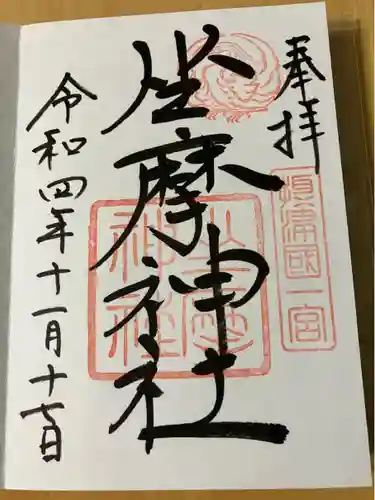 奉拝
摂津國一宮
坐摩神社
坐摩神社
令和四年十一月十七日